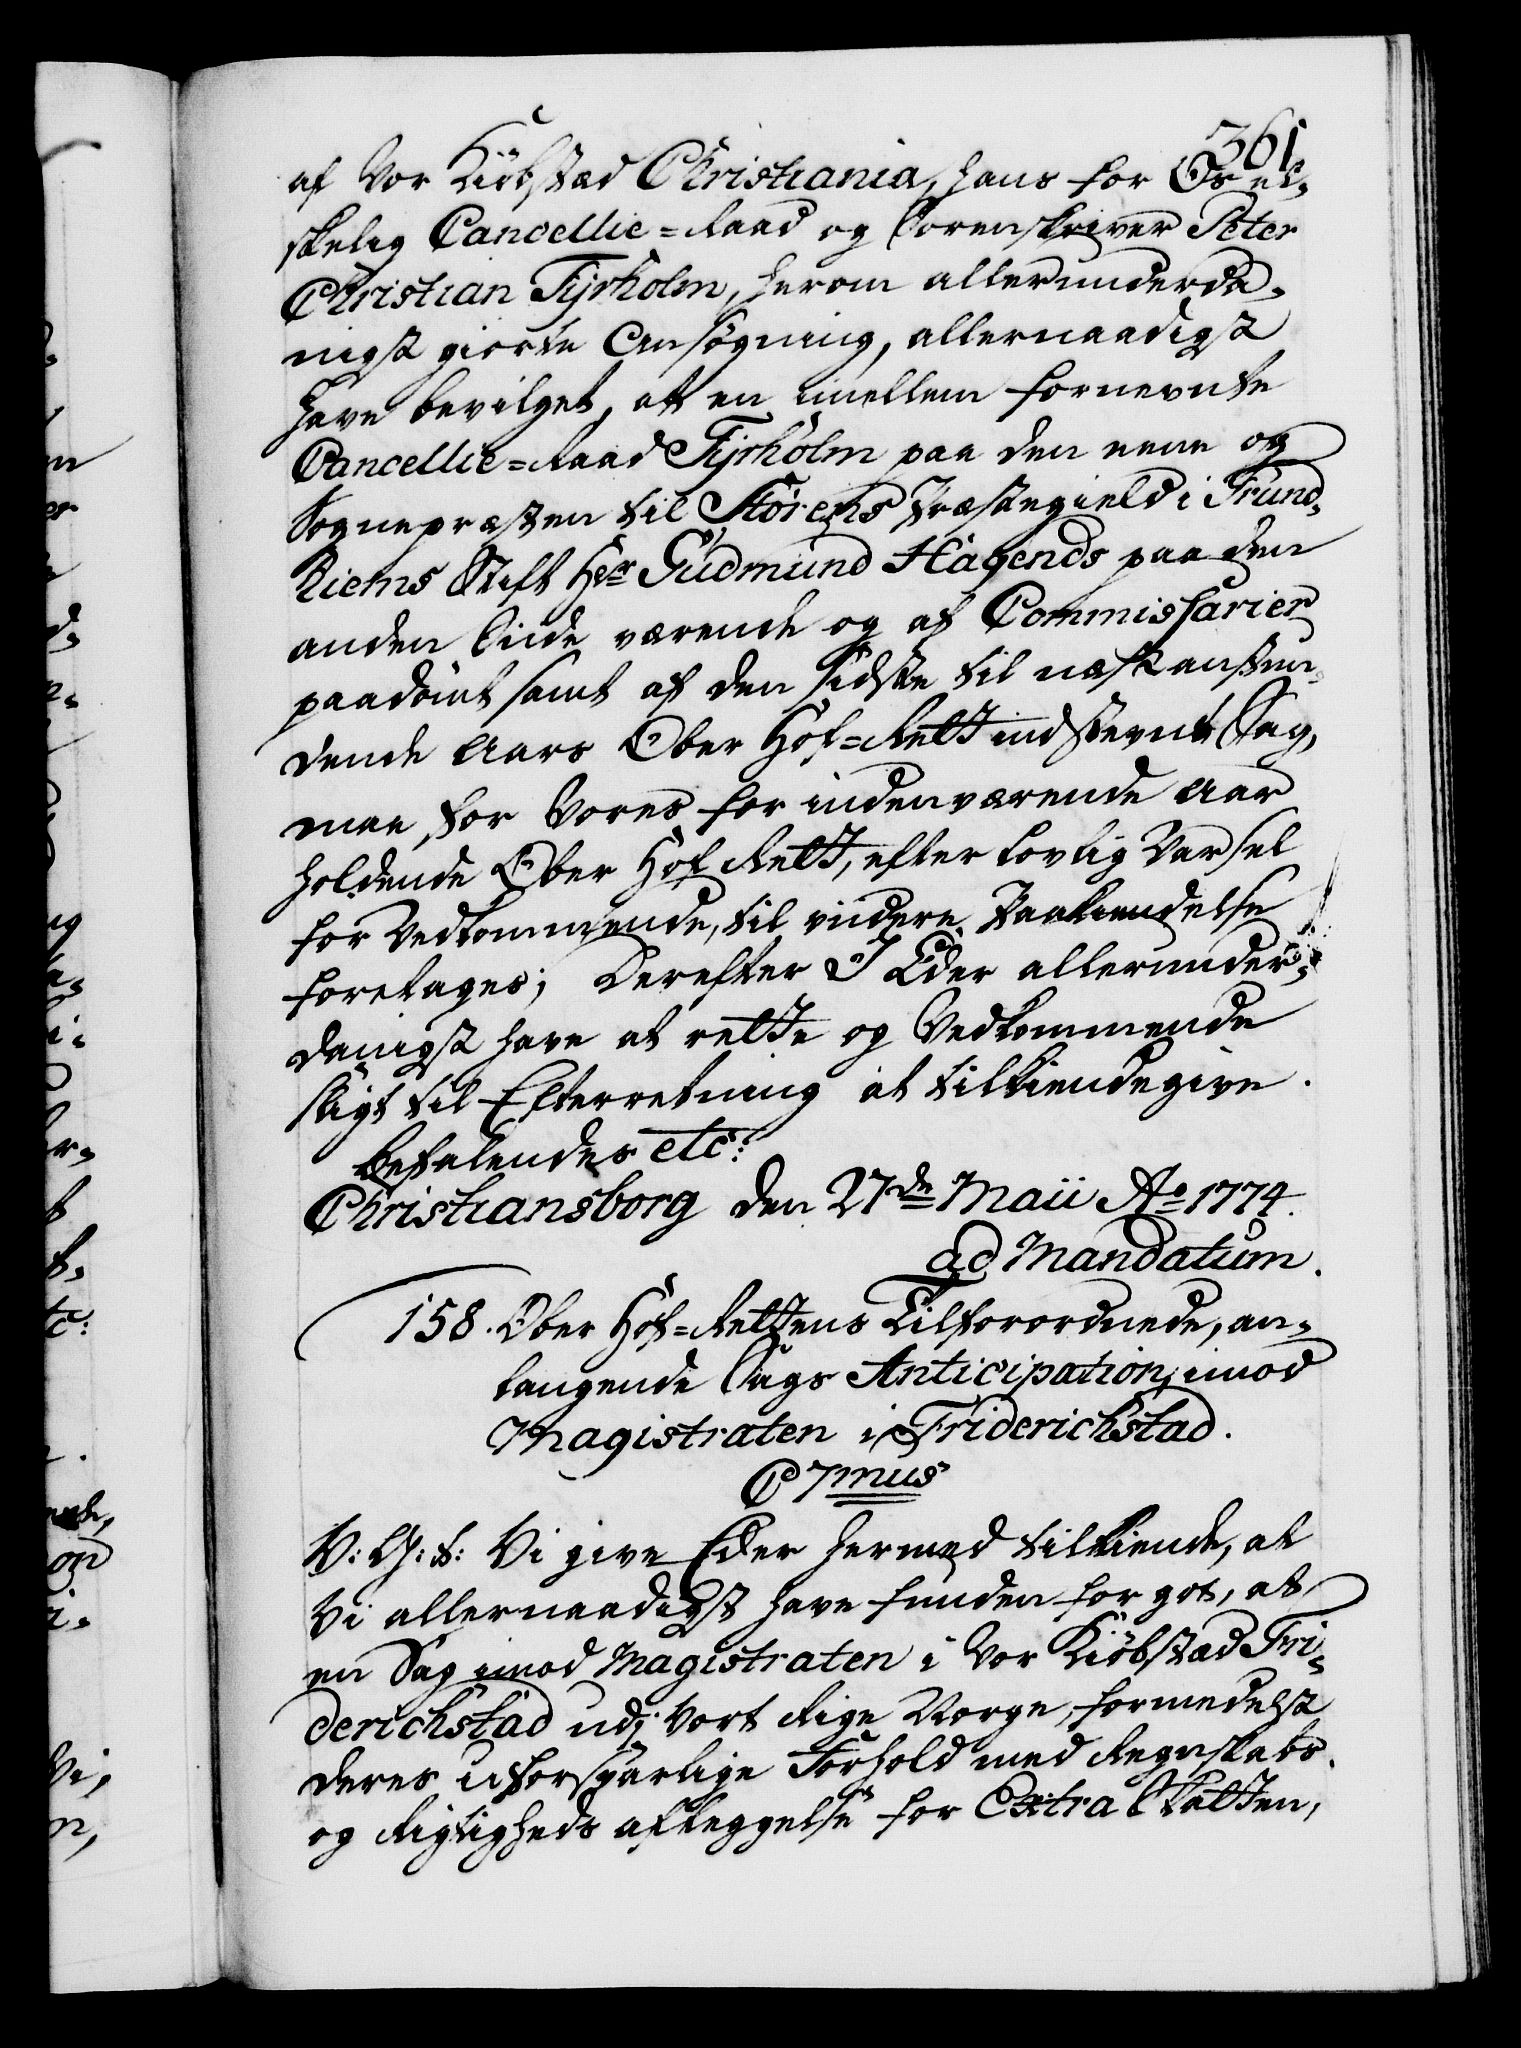 361
af Vor Kiöbstæd Christiania, hans for Os el-
skelig Cancellie=Raad og Sorenskriver Peter
Christian Tyrholm, herom allerunderda-
nigst giorte Ansøgning, allernaadigst
have bevilget, at en imellem fornevnte
Cancellie=Raad Tyrholm paa den eene og
Sognepræsten til Störens Præstegield i Trund-
hiems Stift Hr Gudmund Hagends paa den
anden Siide værende og af Commissarier
paadömt samt af den sidste til næstanstun-
dende Aars Ober Hof=Rett indstevnt Sag,
maa, for Vores for indenværende Aar
holdende Ober Hof Rett, efter lovlig Varsel
for Vedkommende, til viidere Paakiendelse
foretages; Derefter I Eder allerunder-
danigst have at rette og Vedkommende
sligt til Efterretning at tilkiendegive.
Befalendes etc:
Christiansborg den 27de Maii Ao 1774.
ad Mandatum.
158. Ober Hof=Rettens Tilforordnede, an-
langende Sags Anticipation imod
Magistraten i Friderichstad.
C 7mus
V: G: T: Vi give Eder hermed tilkiende, at
Vi allernaadigst have funden for got, at
en Sag imod Magistraten i Vor Kiöbstæd Fri-
derichstad udj Vort Rige Norge, formedelst
deres uforsvarlige Forhold med Regnskabs
og Rigtigheds aflæggelse for Extra Skatten,